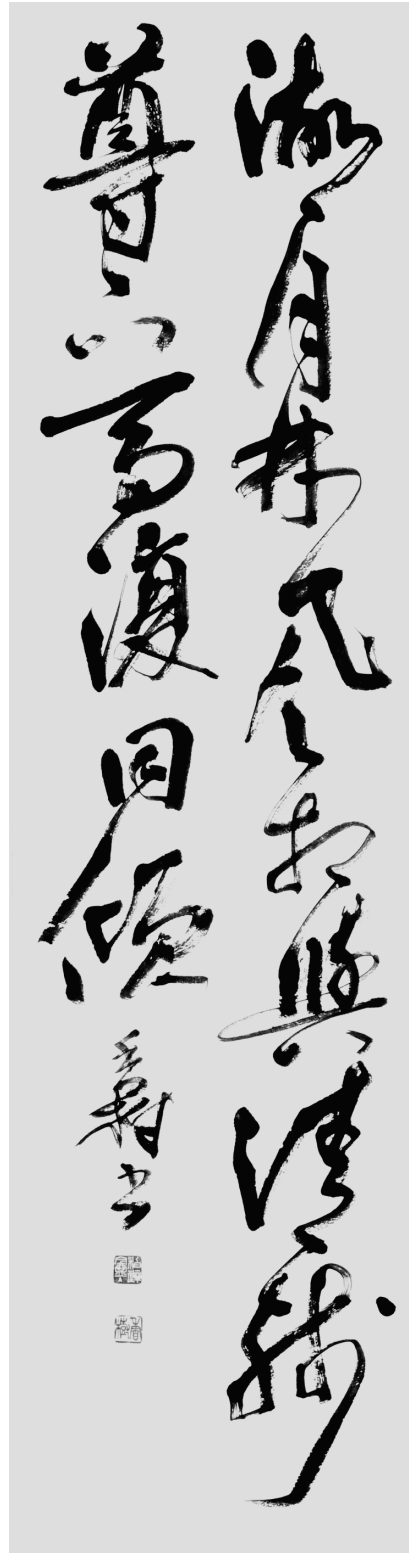 湖月林風相與清殘
尊下馬復同傾
書